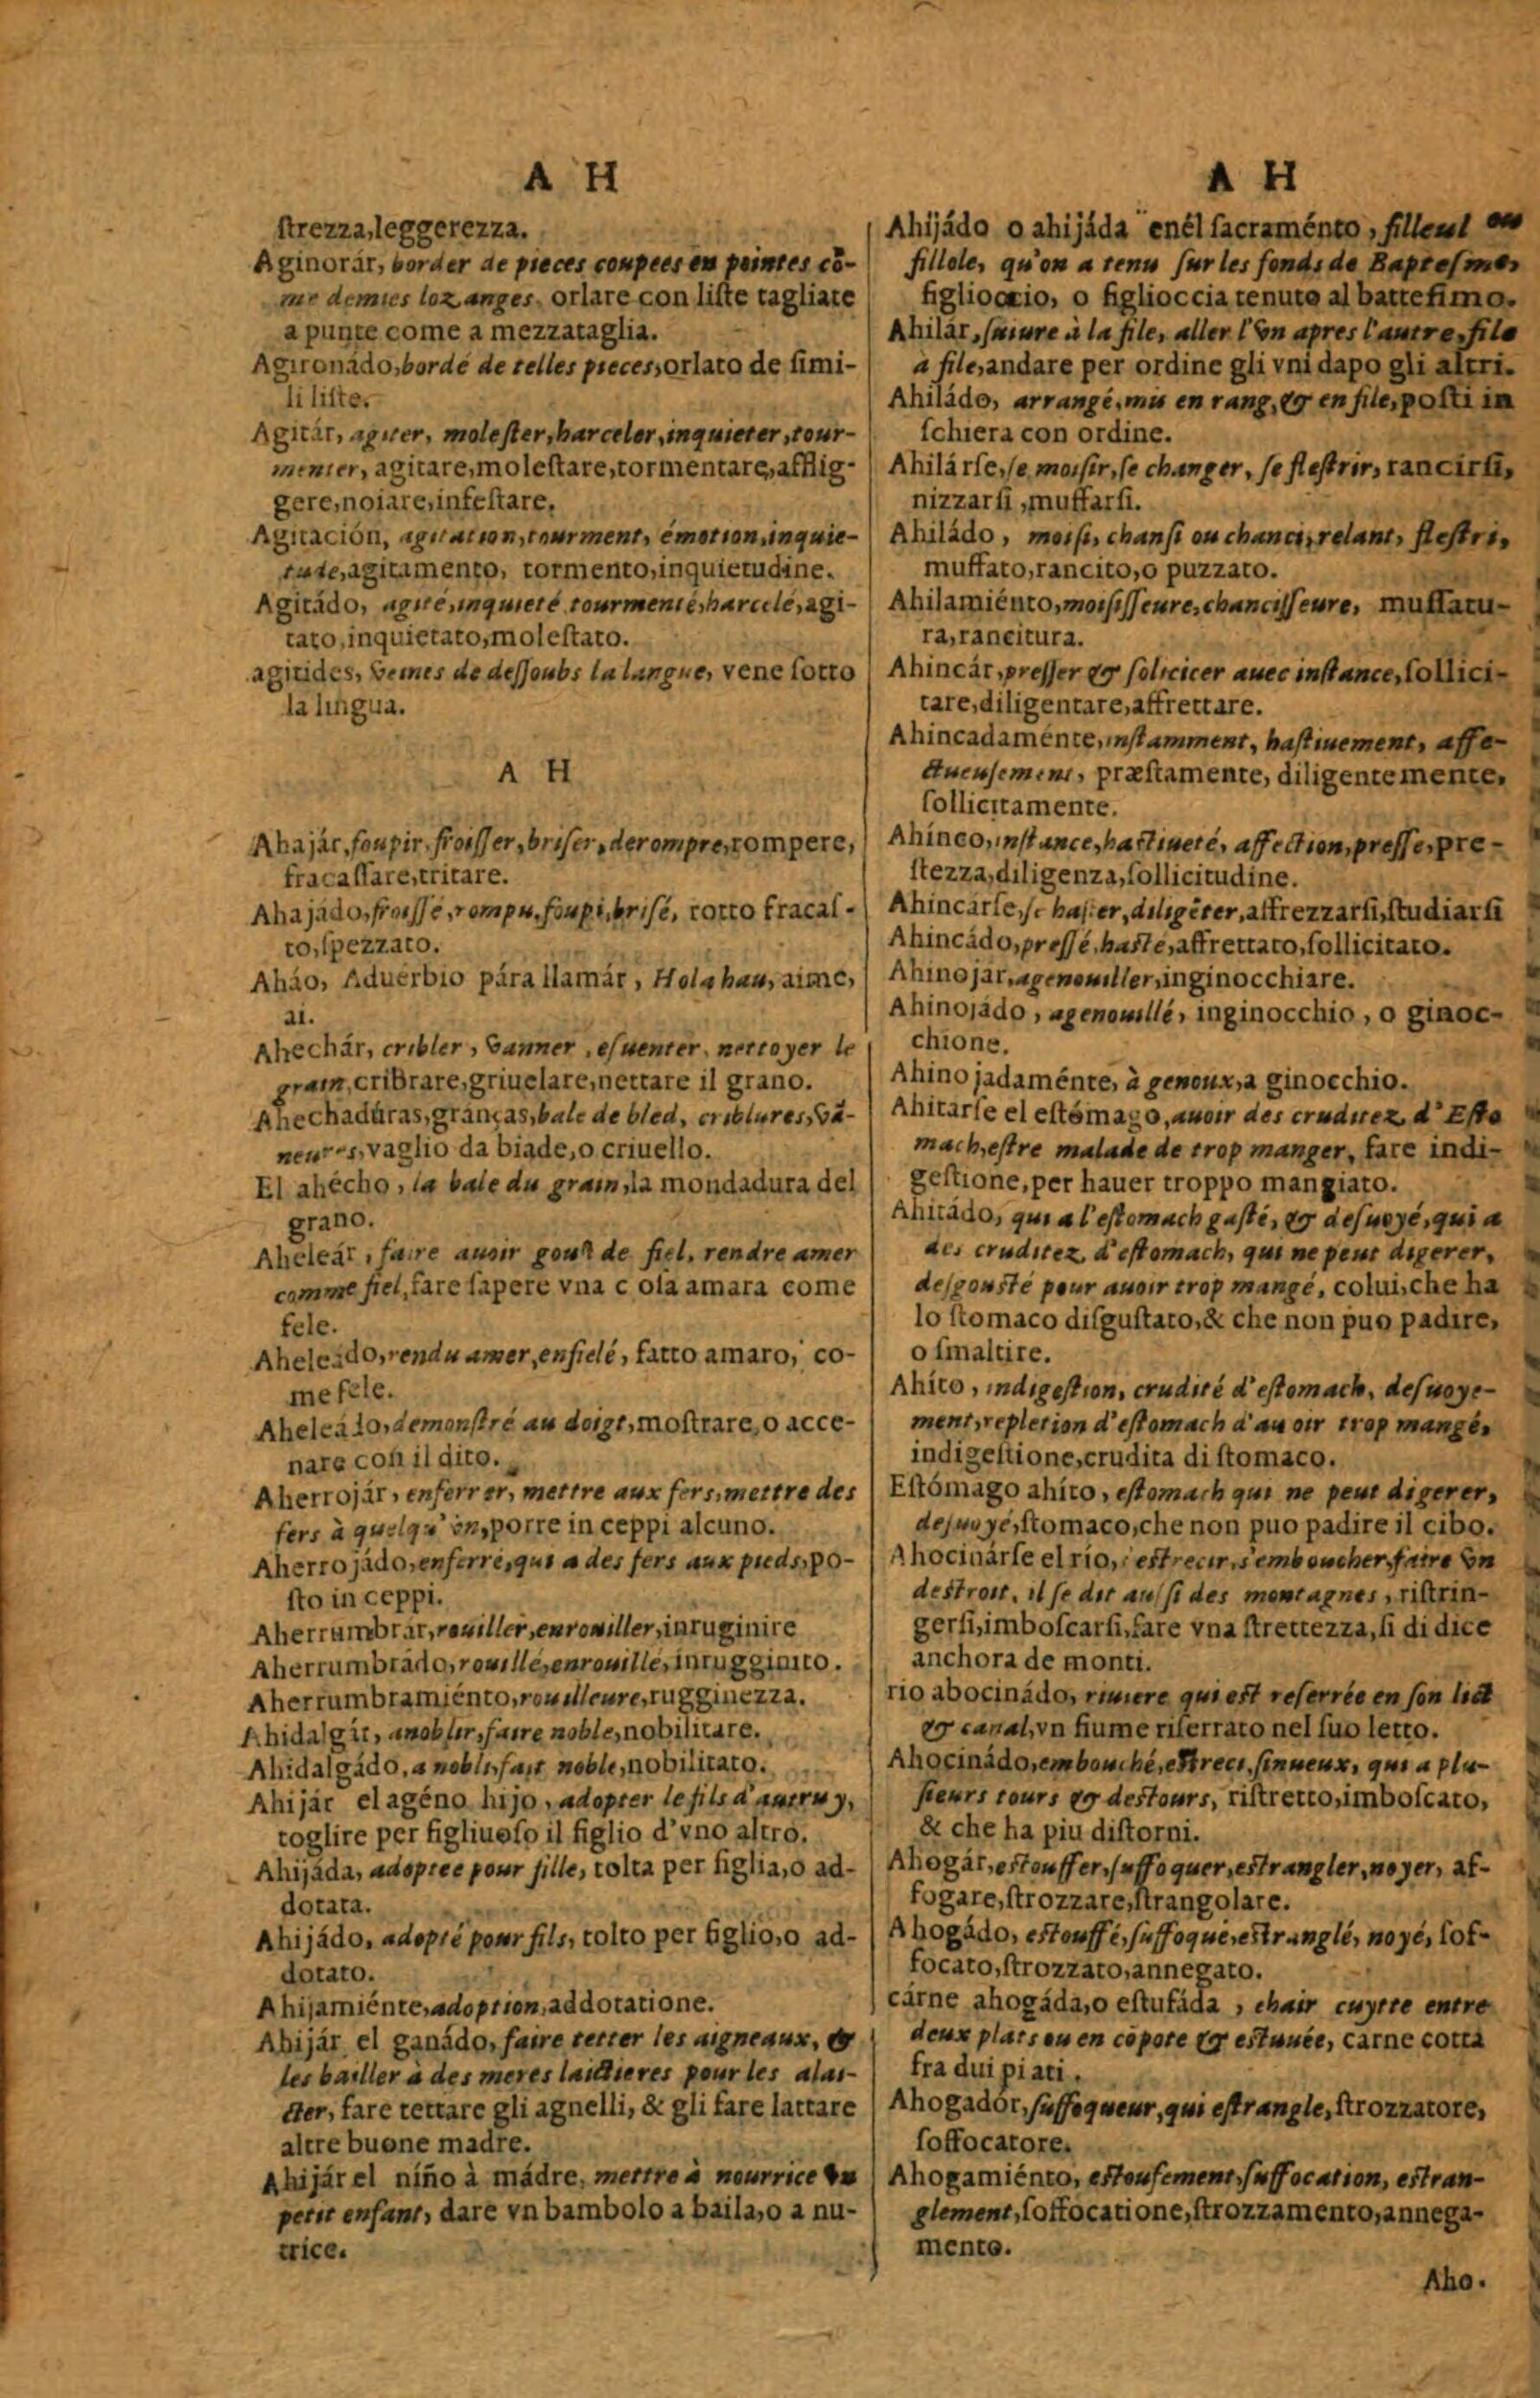 A H
ſtrezza,leggerezza.
Aginorár, border de pieces coupees en pointes cõ-
me demies lozanges, orlare con liſte tagliate
a punte come a mezzataglia.
Agironádo,bordé de telles pieces,orlato de ſimi-
li liſte.
Agitár, agiter, moleſter,harceler,inquieter,tour-
menter, agitare,moleſtare,tormentare,afflig-
gere,noiare,infeſtare.
Agitación, agitation,tourment, émotion,inquie-
tude,agitamento, tormento,inquietudine.
Agitádo, agité,inquieté tourmenté,harcelé,agi-
tato,inquietato,moleſtato.
agitides, veines de deſſoubs la langue, vene ſotto
la lingua.
A H
Ahajár,foupir,froiſſer,briſer,derompre,rompere,
fracaſſare,tritare.
Ahajádo,froiſſé,rompu,foupi,briſé, rotto fracaſ-
to,ſpezzato.
Aháo, Aduérbio pára llamár, Hola hau, aime,
ai.
Ahechár, cribler, vanner, eſuenter, nettoyer le
grain,cribrare,griuelare,nettare il grano.
Ahechadúras,granças,bale de bled, criblures,vã-
neures,vaglio da biade,o criuello.
El ahécho, la bale du grain,la mondadura del
grano.
Aheleár, faire auoir gouſt de fiel, rendre amer
comme fiel,fare ſapere vna c oſa amara come
fele.
Aheleádo,rendu amer,enfielé, fatto amaro, co-
me fele.
Aheleádo,demonſtré au doigt,moſtrare,o acce-
nare con il dito.
Aherrojár, enferrer, mettre aux fers,mettre des
fers à quelqu'vn,porre in ceppi alcuno.
Aherrojádo,enferré,qui a des fers aux pieds,po-
ſto in ceppi.
Aherrumbrár,rouiller,enrouiller,inruginire
Aherrumbrádo,rouillé,enrouillé,inrugginito.
Aherrumbramiénto,rouilleure,rugginezza.
Ahidalgár, anoblir,faire noble,nobilitare.
Ahidalgádo,a nobli,fait noble,nobilitato.
Ahijár el agéno hijo, adopter le fils d'autruy,
toglire per figliuoſo il figlio d'vno altro.
Ahijáda, adoptee pour fille, tolta per figlia,o ad-
dotata.
Ahijádo, adopté pour fils, tolto per figlio,o ad-
dotato.
Ahijamiénte,adoption,addotatione.
Ahijár el ganádo, faire tetter les aigneaux, &
les bailler à des meres laictieres pour les alai-
cter, fare tettare gli agnelli, & gli fare lattare
altre buone madre.
Ahijár el níño à mádre, mettre à nourrice vn
petit enfant, dare vn bambolo a baila,o a nu-
trice.
A H
Ahijádo o ahijáda enél ſacraménto, filleul ou
fillole, qu'on a tenu ſur les fonds de Bapteſme,
figlioccio, o figlioccia tenuto al batteſimo.
Ahilár,ſuiure à la file, aller l'vn apres l'autre,file
à file,andare per ordine gli vni dapo gli altri.
Ahiládo, arrangé,mis en rang,& en file,poſti in
ſchiera con ordine.
Ahilárſe,ſe moiſir,ſe changer, ſe fleſtrir, rancirſi,
nizzarſi ,muffarſi.
Ahiládo, moiſi, chanſi ou chanci,relant, fleſtri,
muffato,rancito,o puzzato.
Ahilamiénto,moiſiſſeure,chanciſſeure, muffatu-
ra,rancitura.
Ahincár,preſſer & ſolicicer auec inſtance,ſollici-
tare,diligentare,affrettare.
Ahincadaménte,inſtamment, haſtiuement, affe-
ctueuſement, præſtamente, diligentemente,
ſollicitamente.
Ahínco,inſtance,haſtiueté, affection,preſſe,pre-
ſtezza,diligenza,ſollicitudine.
Ahincárſe,ſe haſter,diligẽter,affrezzarſi,ſtudiarſi
Ahincádo,preſſé,haſté,affrettato,ſollicitato.
Ahinojár,agenouiller,inginocchiare.
Ahinojádo, agenouillé, inginocchio, o ginoc-
chione.
Ahinojadaménte, à genoux,a ginocchio.
Ahitárſe el eſtómago,auoir des cruditez d'Eſto
mach,eſtre malade de trop manger, fare indi-
geſtione,per hauer troppo mangiato.
Ahitádo, qui a l'eſtomach gaſté, & deſuoyé,qui a
des cruditez d'eſtomach, qui ne peut digerer,
deſgouſté pour auoir trop mangé, colui,che ha
lo ſtomaco diſguſtato,& che non puo padire,
o ſmaltire.
Ahíto, indigeſtion, crudité d'eſtomach, deſuoye-
ment,repletion d'eſtomach d'au oir trop mangé,
indigeſtione,crudita di ſtomaco.
Eſtómago ahíto, eſtomach qui ne peut digerer,
deſuoyé,ſtomaco,che non puo padire il cibo.
Ahocinárſe el río,s'eſtrecir,s'emboucher,faire vn
deſtroit, il ſe dit auſſi des montagnes, riſtrin-
gerſi,imboſcarſi,fare vna ſtrettezza,ſi di dice
anchora de monti.
rio abocinádo, riuiere qui eſt reſerrée en ſon lict
& canal,vn fiume riſerrato nel ſuo letto.
Ahocinádo,embouché,eſtreci,ſinueux, qui a plu-
ſieurs tours & deſtours, riſtretto,imboſcato,
& che ha piu diſtorni.
Ahogár,eſtouffer,ſuffoquer,eſtrangler,noyer, af-
fogare,ſtrozzare,ſtrangolare.
Ahogádo, eſtouffé,ſuffoqué,eſtranglé, noyé, ſof-
focato,ſtrozzato,annegato.
cárne ahogáda,o eſtufáda, chair cuytte entre
deux plats ou en cõpote & eſtuuée, carne cotta
fra dui pi ati.
Ahogadór,ſuffoqueur,qui eſtrangle,ſtrozzatore,
ſoffocatore.
Ahogamiénto, eſtoufement,ſuffocation, eſtran-
glement,ſoffocatione,ſtrozzamento,annega-
mento.
Aho.